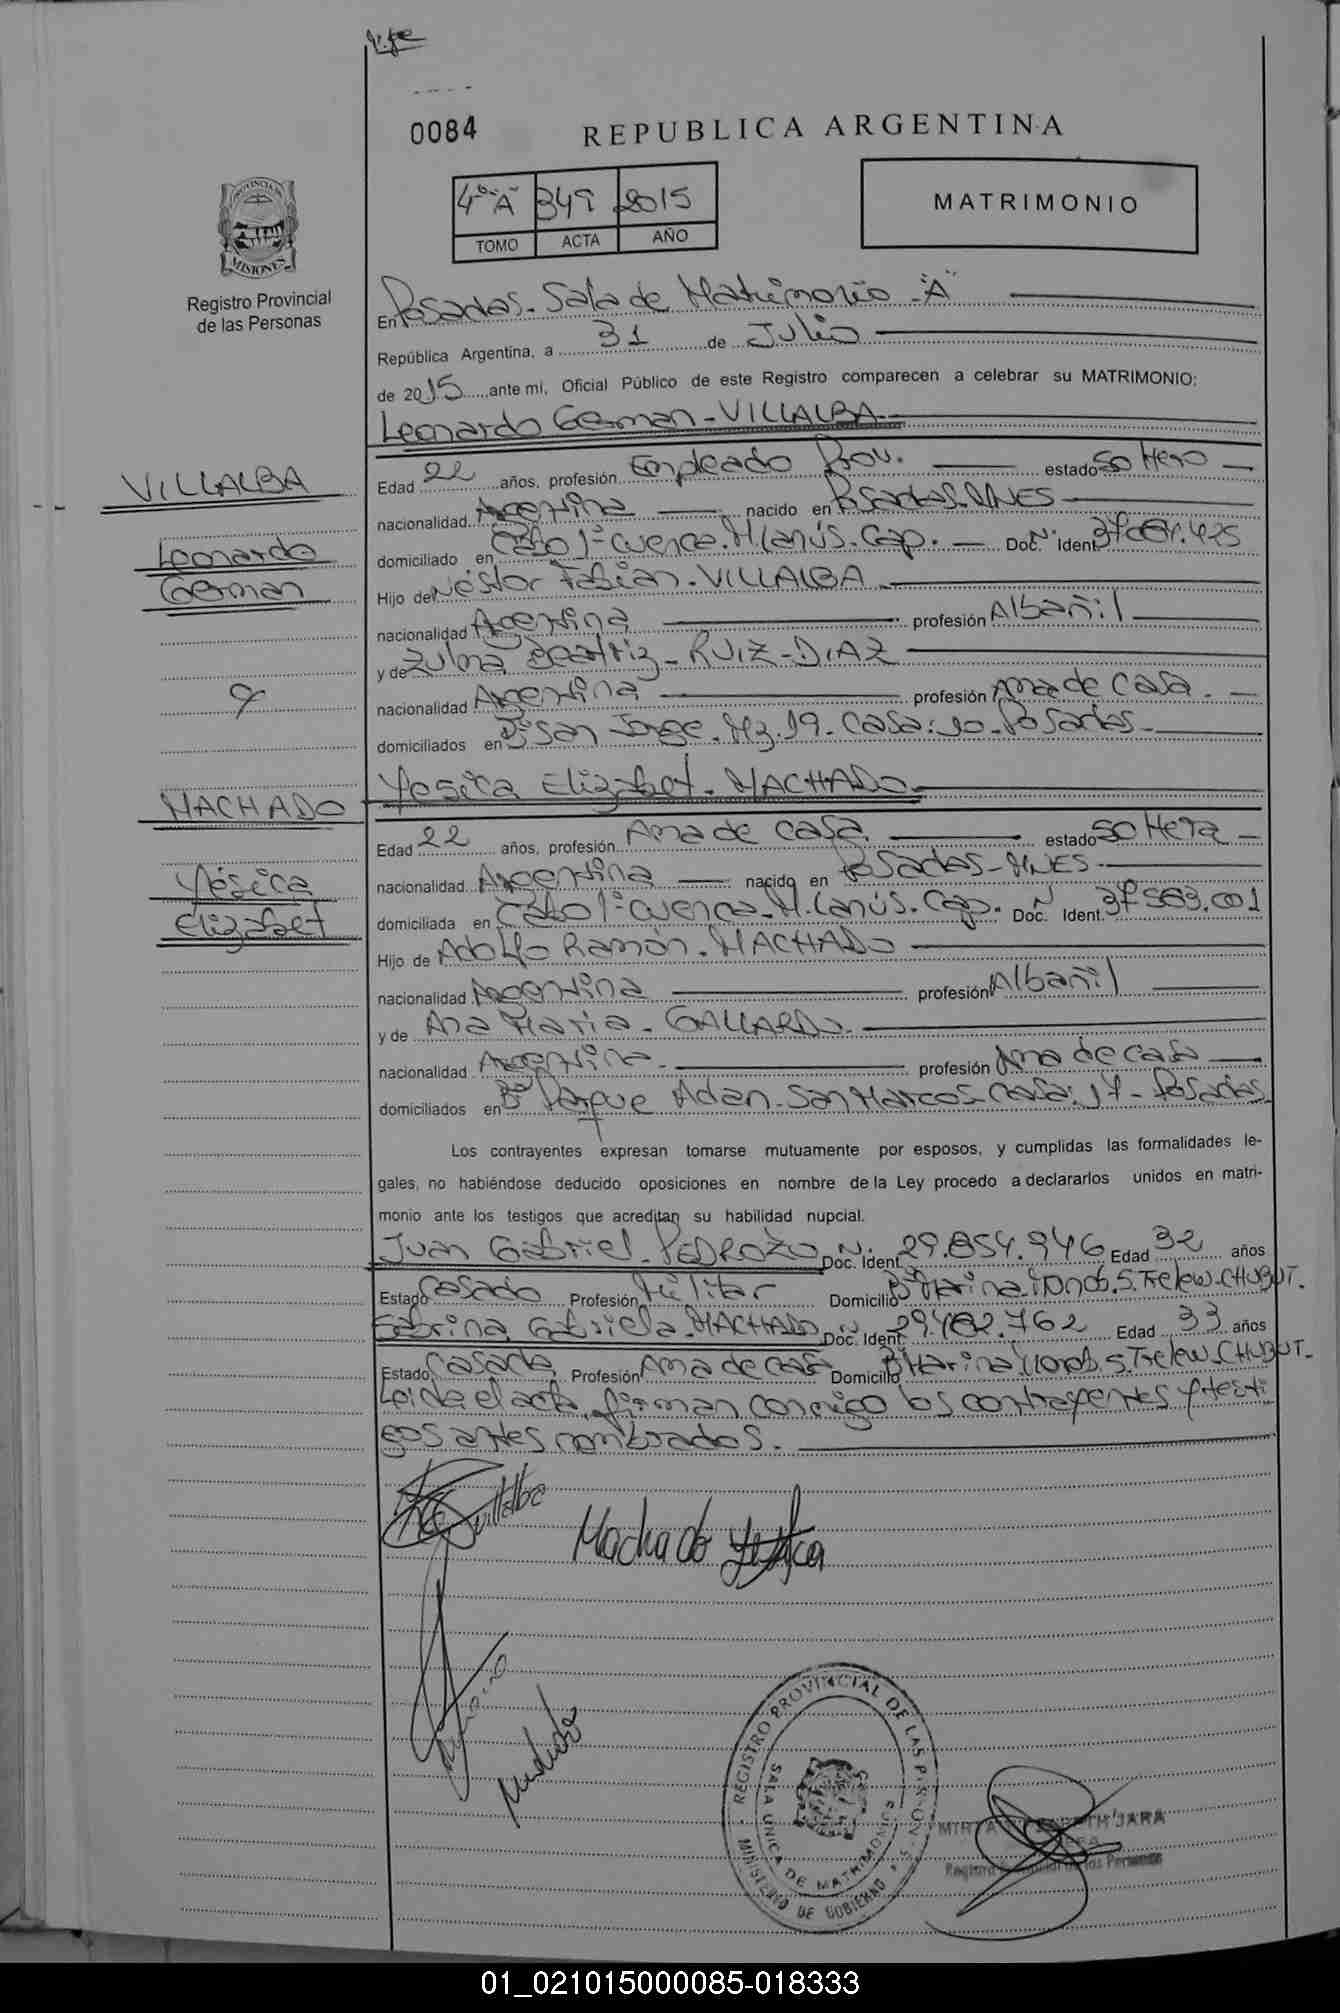 0084
REPUBLICA ARGENTINA
4º "A" 349 2015
TOMO ACTA AÑO
MATRIMONIO
PROVINCIA DE MISIONES
Registro Provincial
de las Personas
En Posadas. Sala de Matrimonio "A"
República Argentina, a 31 de Julio
de 2015, ante mi, Oficial Público de este Registro comparecen a celebrar su MATRIMONIO:
Leonardo German - VILLALBA
VILLALBA
Leonardo
German
Edad 22 años, profesión Empleado Prov. estado Soltero
nacionalidad Argentina nacido en Posadas. MNES
domiciliado en Cabo 1º Cuenca. M. Lanús. Cap. Doc. N. Ident.
Hijo de Néstor Fabian. VILLALBA
nacionalidad Argentina profesión Albañil
y de Zulma Beatriz - RUIZ - DIAZ
nacionalidad Argentina profesión Ama de casa.
domiciliados en Bº San Jorge. Mz. 19. Casa: 10. Posadas.
y
Yesica Elizabet. MACHADO
MACHADO
Yésica
Elizabet
Edad 22 años, profesión Ama de casa. estado Soltera
nacionalidad Argentina nacido en Posadas - MNES
domiciliada en Cabo 1º Cuenca. M. Lanús. Cap. Doc. N. Ident. 37.583.001
Hijo de Adolfo Ramón. MACHADO
nacionalidad Argentina profesión Albañil
y de Ana Maria. GALLARDO.
nacionalidad Argentina. profesión Ama de casa
domiciliados en Bº Parque Adan. San Marcos. casa: 17 - Posadas.
Los contrayentes expresan tomarse mutuamente por esposos, y cumplidas las formalidades le-
gales, no habiéndose deducido oposiciones en nombre de la Ley procedo a declararlos unidos en matri-
monio ante los testigos que acreditan su habilidad nupcial.
Juan Gabriel. PEDROZO Doc. N. Ident. 29.854.946 Edad 32 años
Estado Casado Profesión Militar Domicilio Bº Marina Trelew. CHUBUT.
Sabrina Gabriela. MACHADO Doc. N. Ident. 29.482.762 Edad 33 años
Estado Casada. Profesión Ama de casa Domicilio Bº Marina Trelew. CHUBUT.
Leida el acta, firman conmigo los contrayentes y testi
gos antes nombrados.
Villalba
Machado Yesica
Machado
REGISTRO PROVINCIAL DE LAS PERSONAS
SALA UNICA DE MATRIMONIOS
MINISTERIO DE GOBIERNO
MIRTA JARA
Registro Provincial de las Personas
01_021015000085-018333